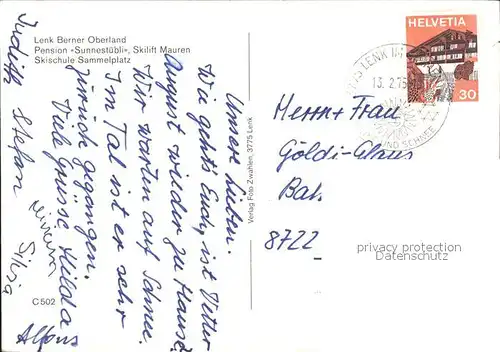 Lenk Berner Oberland
Pension «Sunnestübli», Skilift Mauren
Skischule Sammelplatz
Unsere Lieben.
Wie geht's Euch, ist Vitter
August wieder zu Hause?
Wir warten auf Schnee.
Im Tal ist er sehr
zurück gegangen.
Viele Grüsse Hilda
Judith Stefan
Silvia
Alfons
C 502
Verlag Foto Zwahlen, 3775 Lenk
HELVETIA
30
3775 LENK IM
13. 2. 75
UND SCHNEE
Herrn + Frau
Göldi-Claus
Bat.
8722
privacy protection
Datenschutz